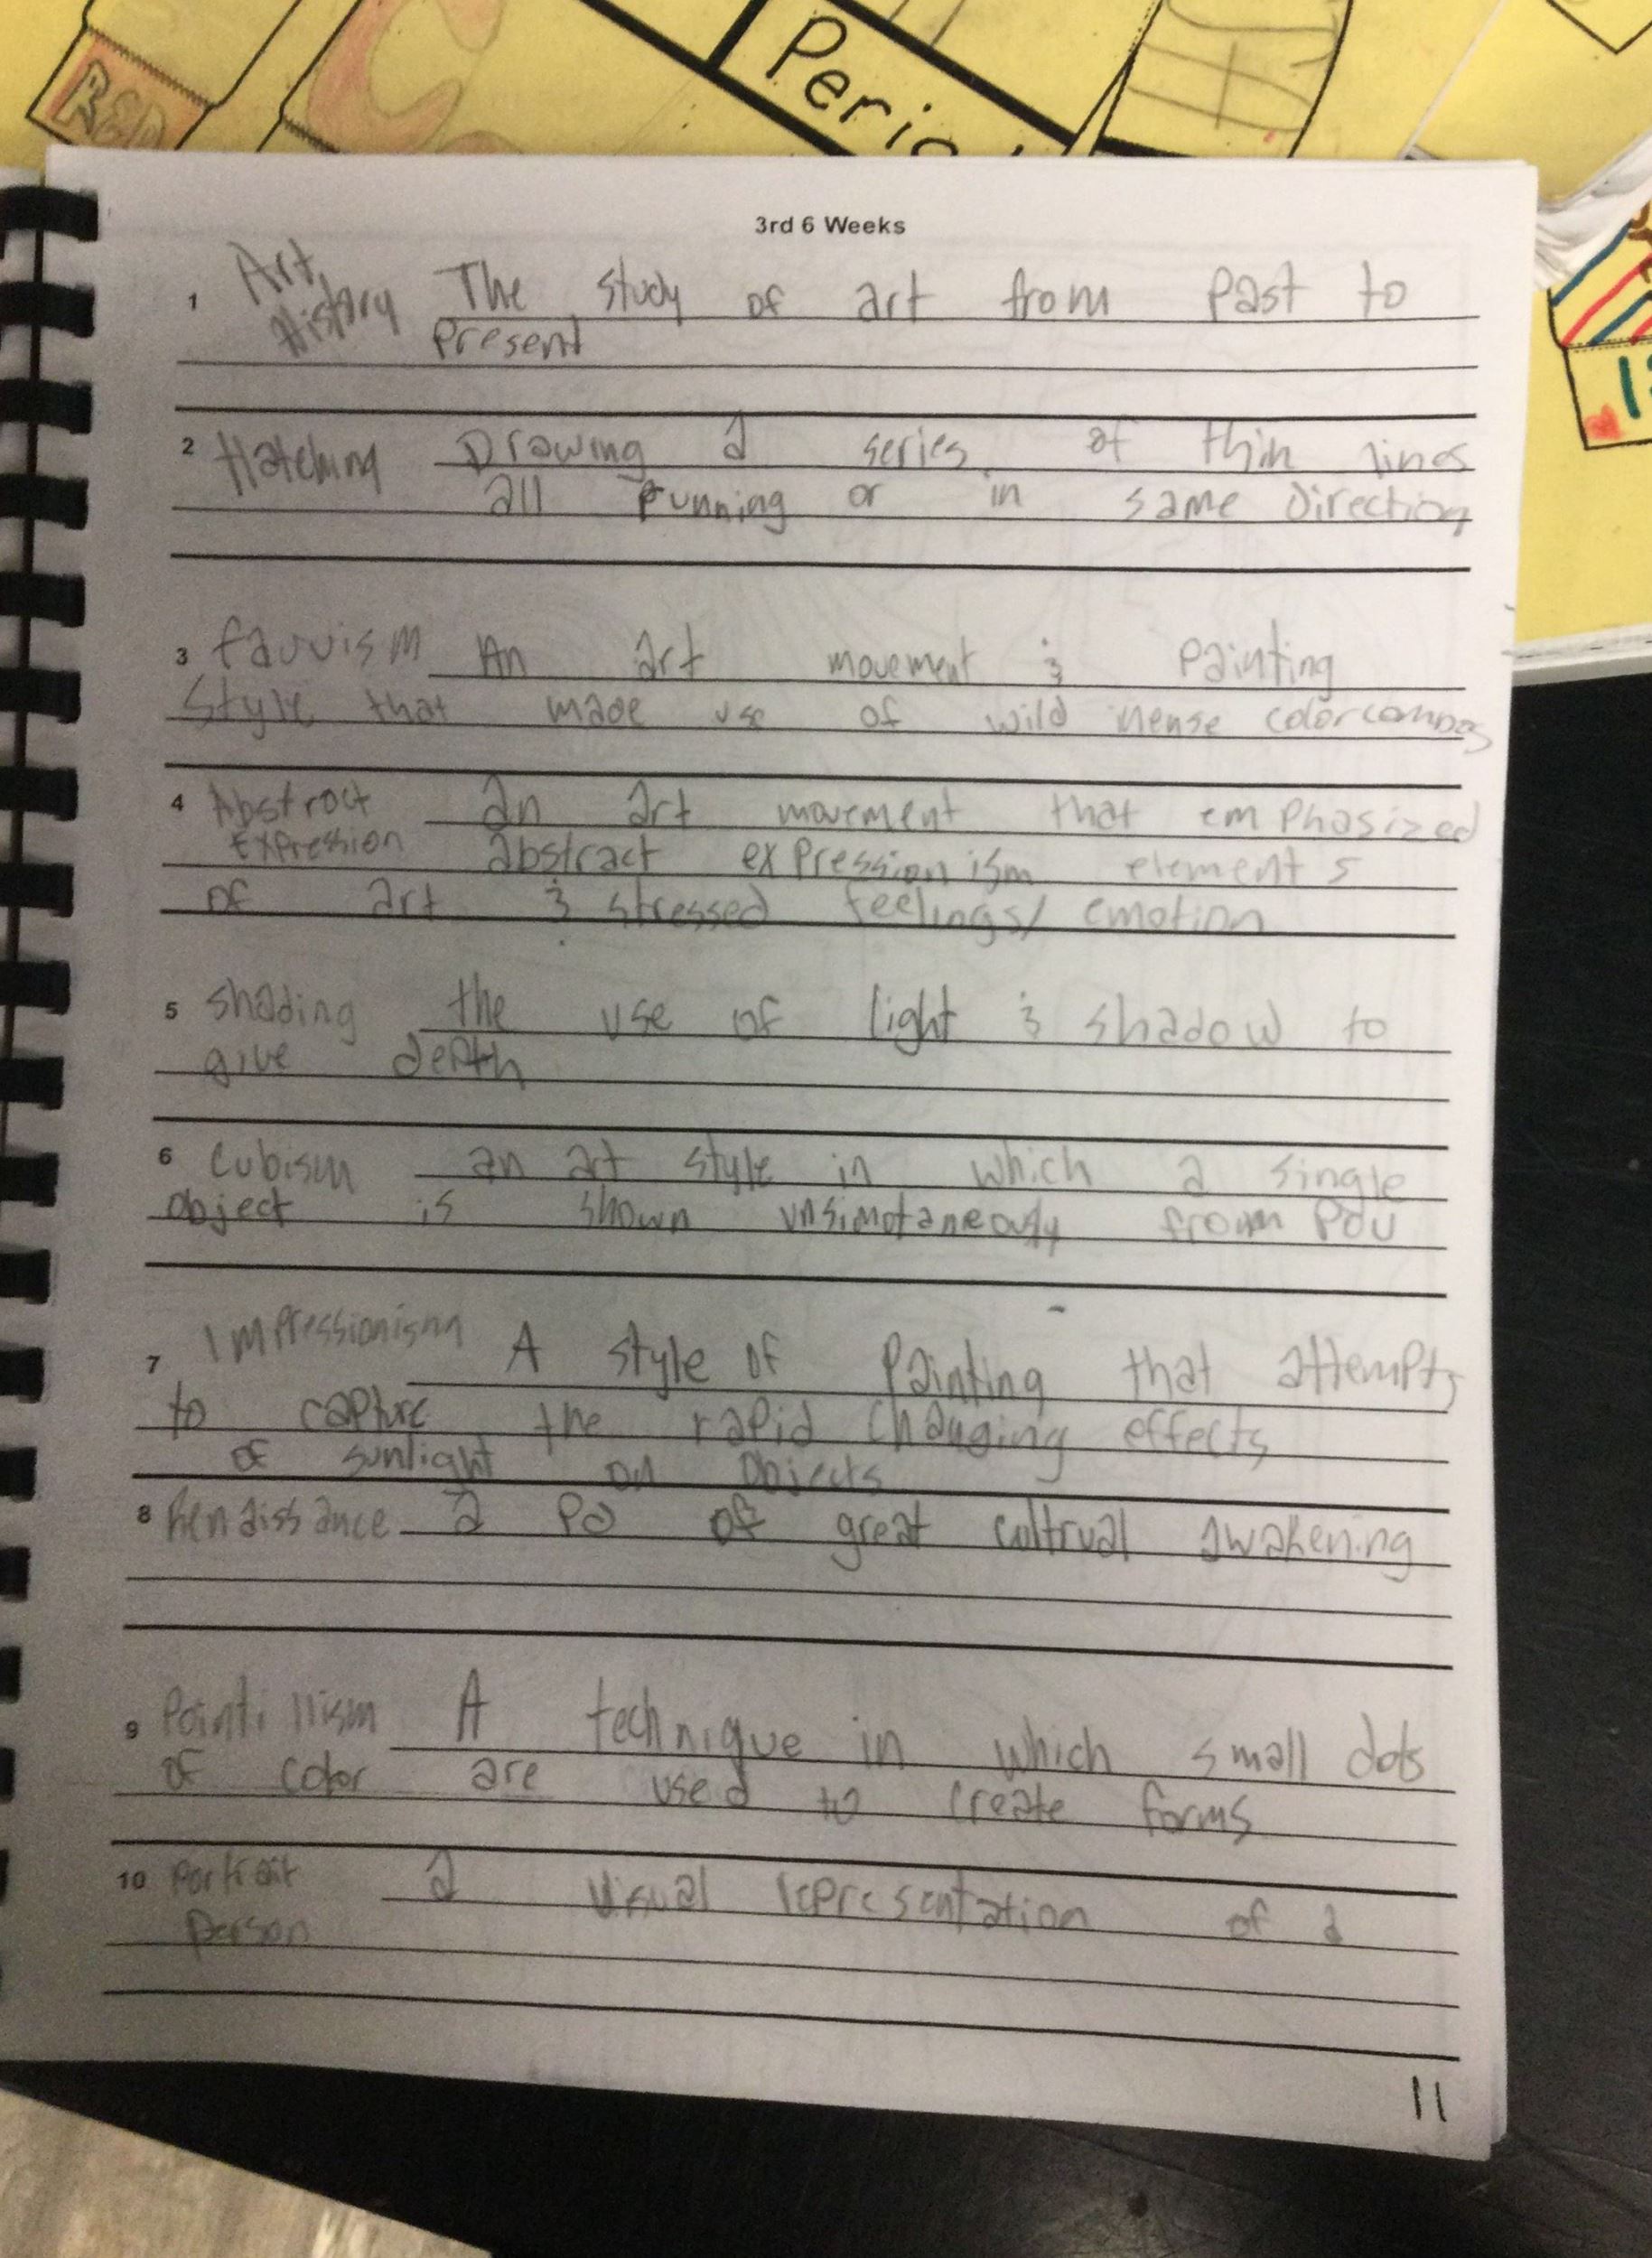 RED
Perio
3rd 6 Weeks
1 Art History The study of art from Past to
Present
2 Hatching Drawing a series of thin lines
all running or in same Direction
3 fauvism An art movement & Painting
Style that made use of wild color
4 Abstract an art movement that emphasized
Expression abstract expressionism elements
of art & stressed feelings/ emotion
5 Shading the use of light & shadow to
give depth
6 Cubism an art style in which a single
object is shown unsimotaneously from POU
7 Impressionism A style of Painting that attempts
to capture the rapid changing effects
of sunlight on objects
8 Renaissance a Pd of great cultrual awakening
9 Pointillism A technique in which small dots
of color are used to create forms
10 Portrait a visual representation of a
person
11